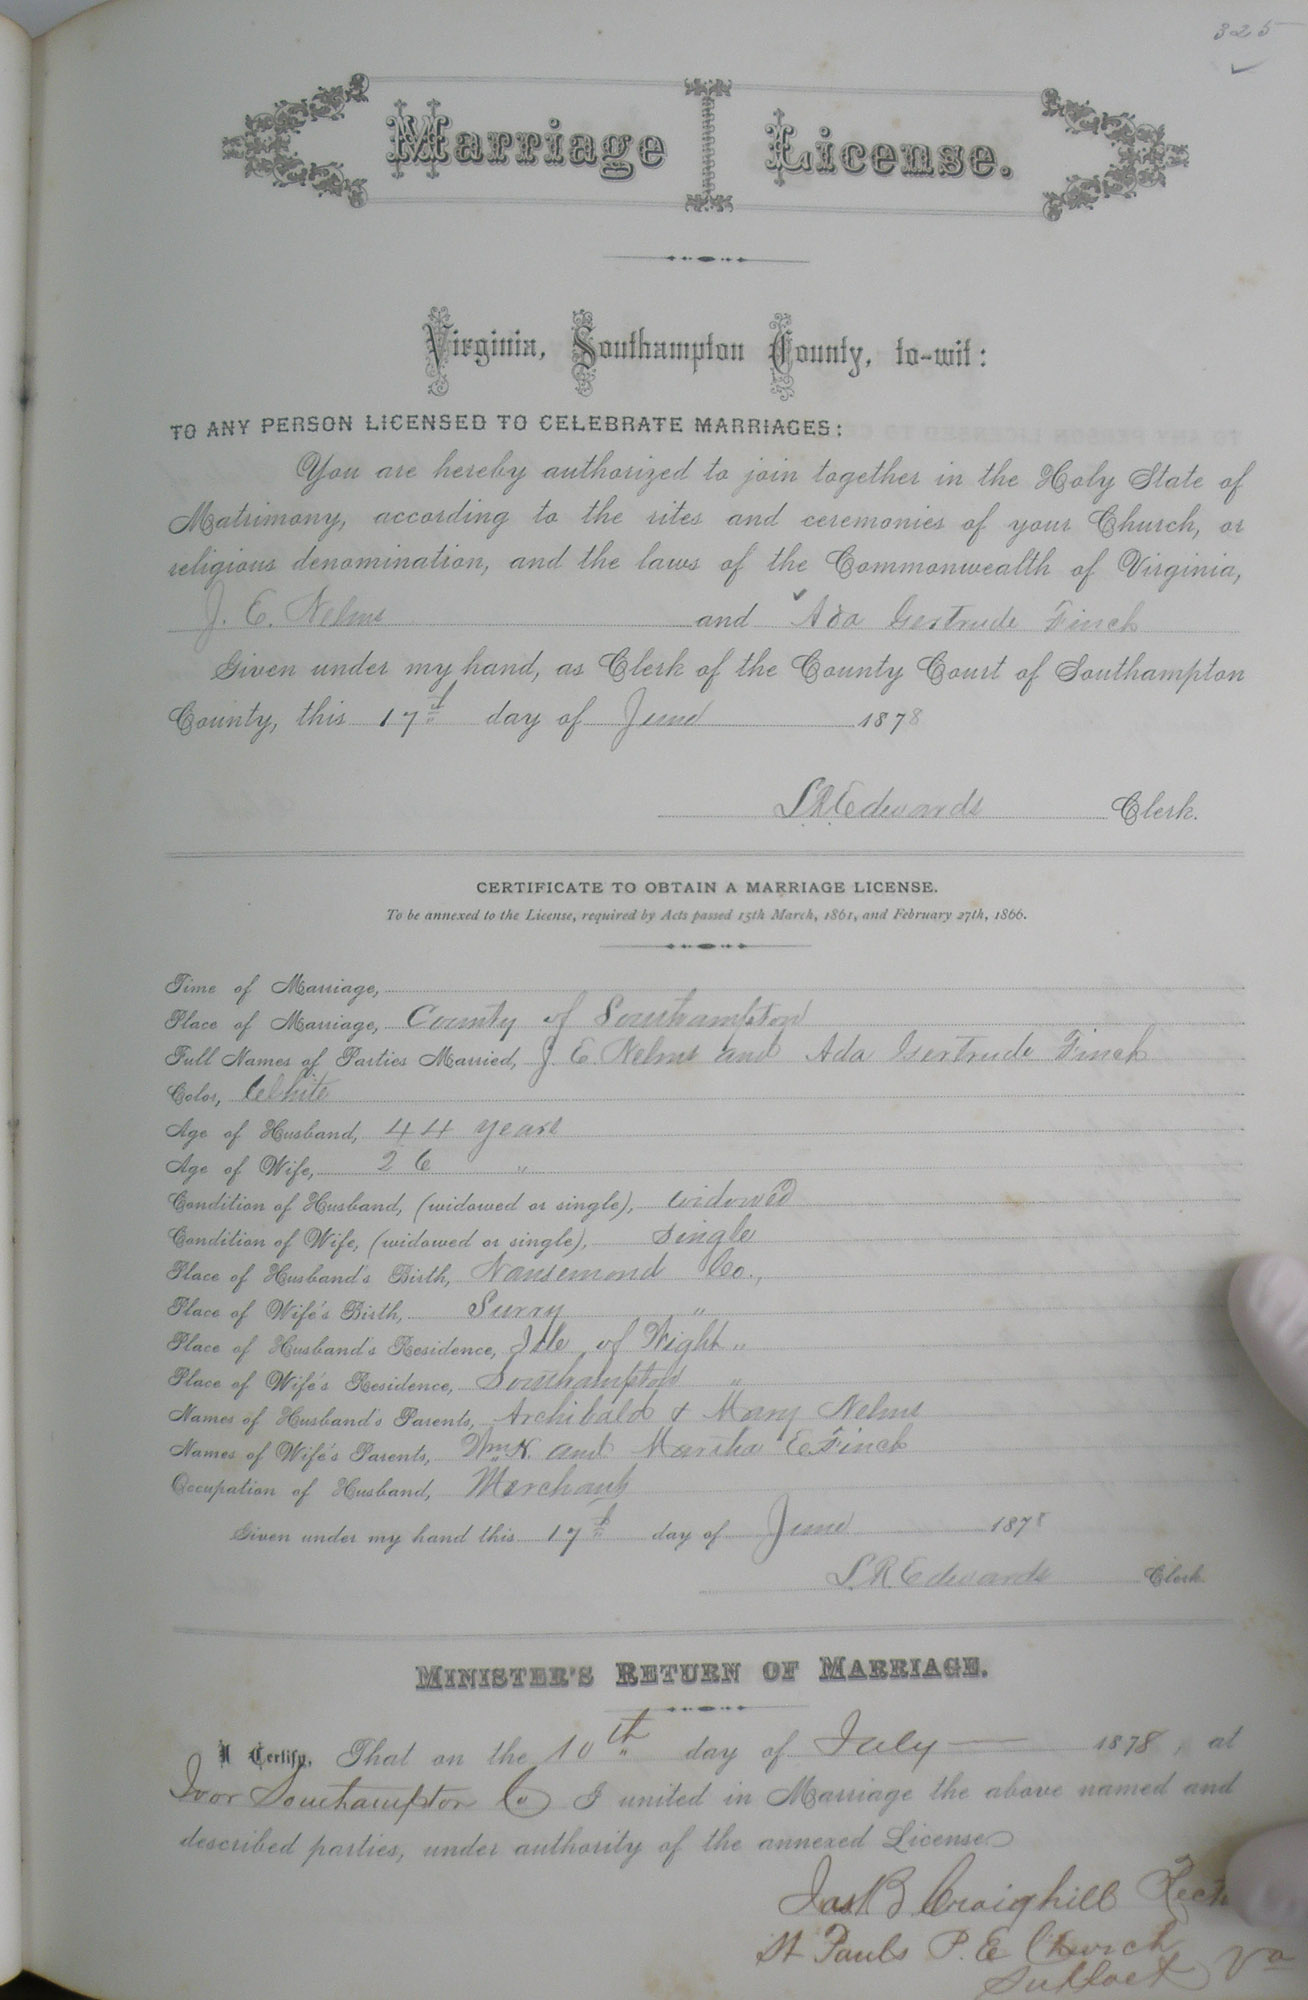 325
Marriage License.
Virginia, Southampton County, to-wit:
TO ANY PERSON LICENSED TO CELEBRATE MARRIAGES:
You are hereby authorized to join together in the Holy State of
Matrimony, according to the rites and ceremonies of your Church, or
religious denomination, and the laws of the Commonwealth of Virginia,
J. E. Nelms and Ada Gertrude Finch
Given under my hand, as Clerk of the County Court of Southampton
County, this 17th day of June 1878
L.R. Edwards Clerk.
CERTIFICATE TO OBTAIN A MARRIAGE LICENSE.
To be annexed to the License, required by Acts passed 15th March, 1861, and February 27th, 1866.
Time of Marriage,
Place of Marriage, County of Southampton
Full Names of Parties Married, J. E. Nelms and Ada Gertrude Finch
Color, White
Age of Husband, 44 years
Age of Wife, 26 "
Condition of Husband, (widowed or single), widowed
Condition of Wife, (widowed or single), single
Place of Husband's Birth, Nansemond Co.,
Place of Wife's Birth, Surry "
Place of Husband's Residence, Isle of Wight "
Place of Wife's Residence, Southampton "
Names of Husband's Parents, Archibald & Mary Nelms
Names of Wife's Parents, Wm H. and Martha E Finch
Occupation of Husband, Merchant
Given under my hand this 17th day of June 1878
L.R. Edwards Clerk.
MINISTER'S RETURN OF MARRIAGE.
I Certify, That on the 10th day of July 1878, at
Ivor Southampton Co I united in Marriage the above named and
described parties, under authority of the annexed License
Jas B. Craighill
St Pauls P. E. Church
Suffolk Va